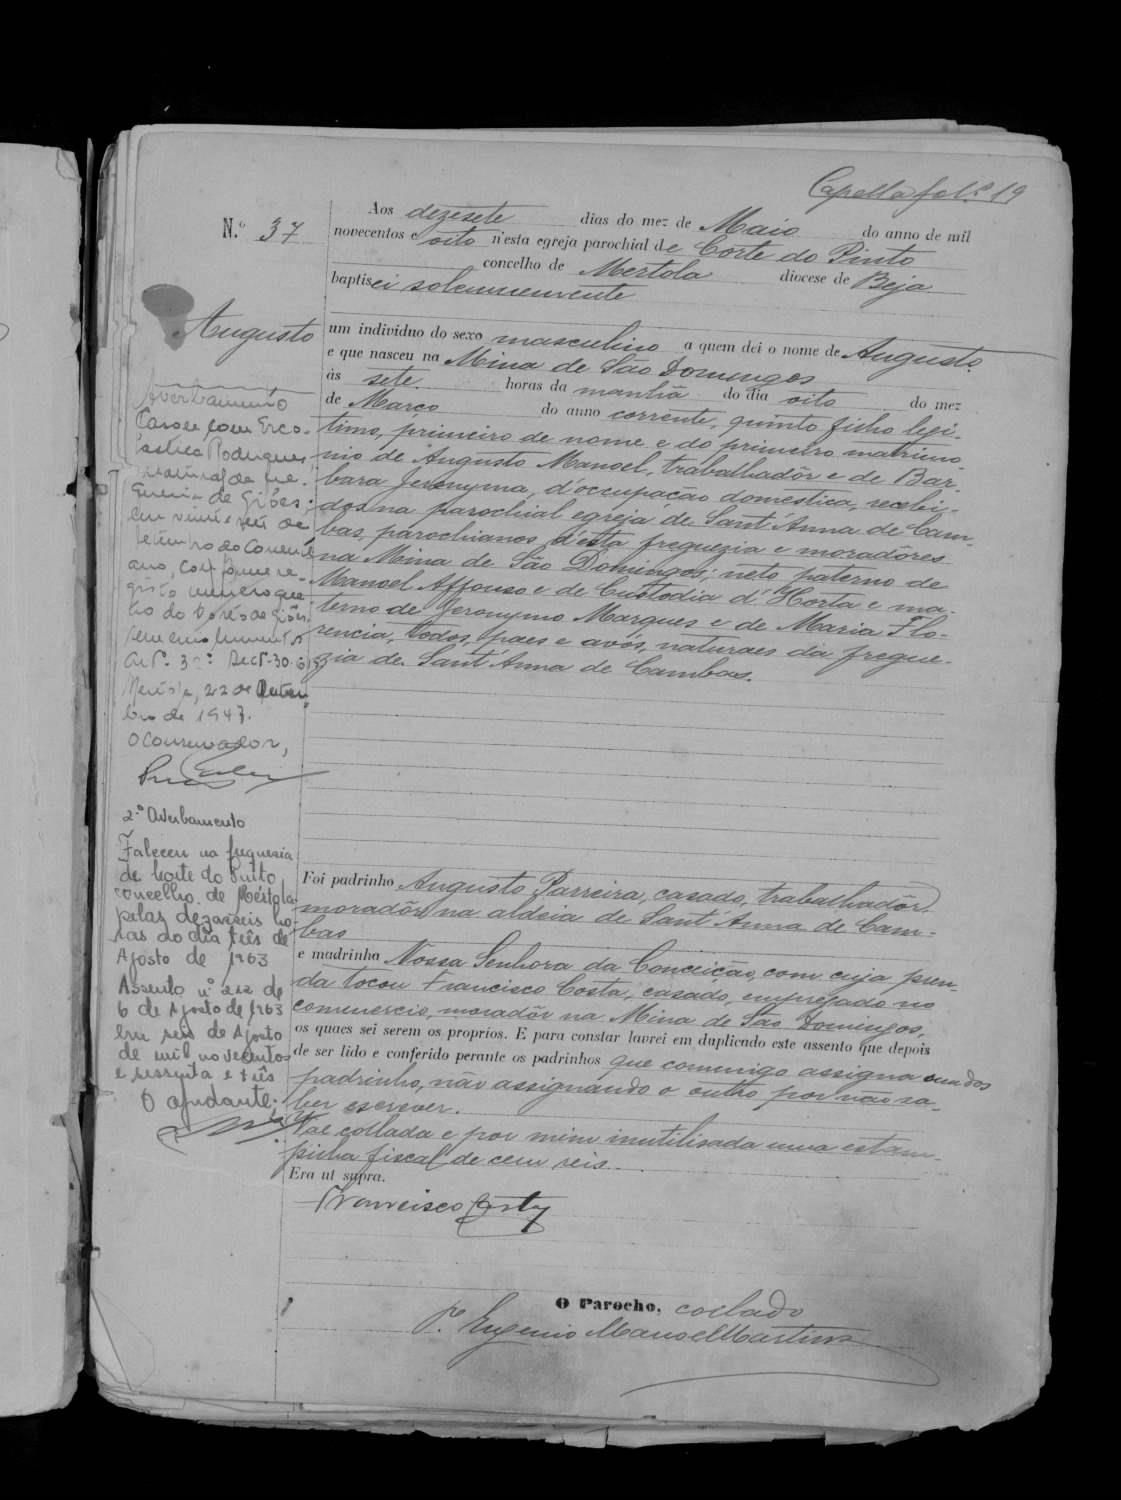 Capella fol.º 19
N.º 37
Aos dezesete dias do mez de Maio do anno de mil
novecentos e oito n'esta egreja parochial de Corte do Pinto
concelho de Mertola diocese de Beja
baptisei solemnemente
Augusto
um individuo do sexo masculino a quem dei o nome de Augusto
e que nasceu na Mina de São Domingos
ás sete horas da manhã do dia oito do mez
de Março do anno corrente, quinto filho legi-
timo, primeiro de nome e do primeiro matrimo-
nio de Augusto Manoel, trabalhadôr e de Bar-
bara Jeronyma, d'occupação domestica, recebi-
dos na parochial egreja de Sant'Anna de Cam-
bas, parochianos d'esta freguezia e moradôres
na Mina de São Domingos; neto paterno de
Manoel Affonso e de Custodia d'Horta e ma-
terno de Jeronymo Marques e de Maria Flo-
rencia, todos, paes e avós, naturaes da fregue-
zia de Sant'Anna de Cambas.
Averbamento
Casou com
Rodrigues
natural da fre-
guezia de Giões;
em vinte e seis de
setembro do corrente
ano, conforme re-
gisto numero
do de Giões
sem emolumentos
Artº. 32º Dect.
Mertola, 22 de
bro de 1947.
O Conservador,
2.º Averbamento
Faleceu na freguesia
de Corte do Pinto,
concelho de Mértola
pelas dezasseis ho-
ras do dia três de
Agosto de 1963
Assento nº 212 de
6 de Agosto de 1963
Em seis de Agosto
de mil novecentos
e sessenta e três
O ajudante;
Foi padrinho Augusto Parreira, casado, trabalhadôr,
moradôr na aldeia de Sant'Anna de Cam-
bas
e madrinha Nossa Senhora da Conceição, com cuja pren-
da tocou Francisco Costa, casado, empregado no
commercio, moradôr na Mina de São Domingos,
os quaes sei serem os proprios. E para constar lavrei em duplicado este assento que depois
de ser lido e conferido perante os padrinhos que commigo assigna um dos
padrinho, não assignando o outro por não sa-
ber escrever.
Vae collada e por mim inutilisada uma estam-
pilha fiscal de cem reis.
Era ut supra.
Francisco Costa
O Parocho, collado
P.e Eugenio Manoel Martins